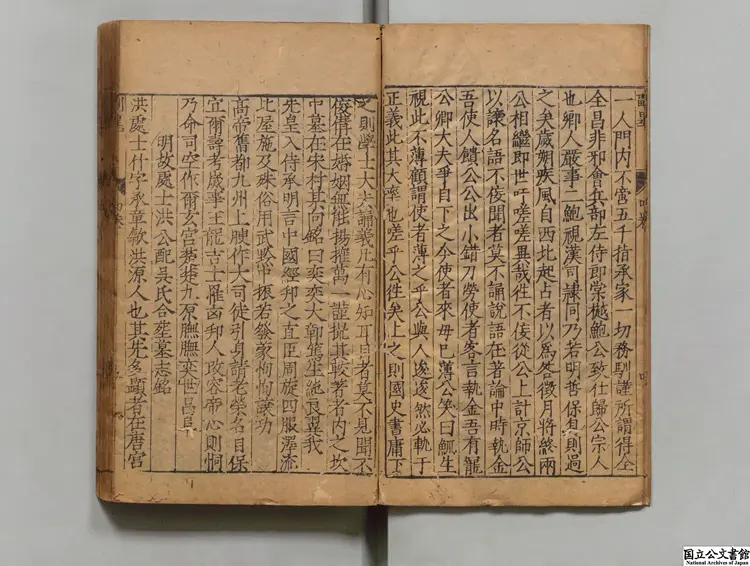 一人門内不啻五千指承家一切務馴謹所謂得全
全昌非邪會兵部左侍郎棠樾鮑公致仕歸公宗人
也鄉人嚴事一鮑視漢司隷同乃若明哲保身則過
之矣歲朔疾風自西北起占者以爲咎徵月將終兩
公相繼即世吁嗟嗟異哉不佞從公上計京師公
以讓名語不佞聞者莫不誦說語在著論中時執金
吾使人饋公公出小錯刀勞使者客言執金吾有寵
公卿大夫爭自下之今使者來毋已薄公笑曰鯫生
視此不薄顧謂使者薄之乎公與人逡逡然必軌于
正義此其大率也嗟乎公徃矣上之則國史書庸下
之則學士大夫誦義凡有心知耳目者莫不見聞不
佞儔在婚姻無能揚搉萬一謹撮其較著者内之坎
中墓在宋村其向銘曰奕奕大鄣篤生誕良翼我
先皇入侍承明言中國經邦之直匡周旋四服澤流
比屋施及殊俗用武黔中振若發蒙恂恂讓功
高帝舊都九州上腴作大司徒引身請老榮名自保
宜爾壽考歲事王龍吉士罹凶邦人改容帝心則恫
乃命司空作爾玄宮若九原膴膴奕世昌
明故處士洪公配吳氏合塟墓志銘
洪處士什字承章歙洪源人也其先多顯者在唐宮
國立公文書館
National Archives of Japan